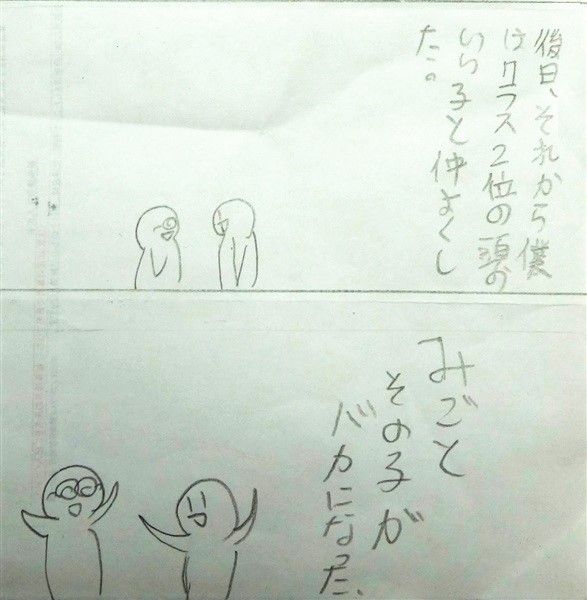 後日、それから僕
はクラス2位の頭の
いい子と仲よくし
た。
みごと
その子が
バカになった、